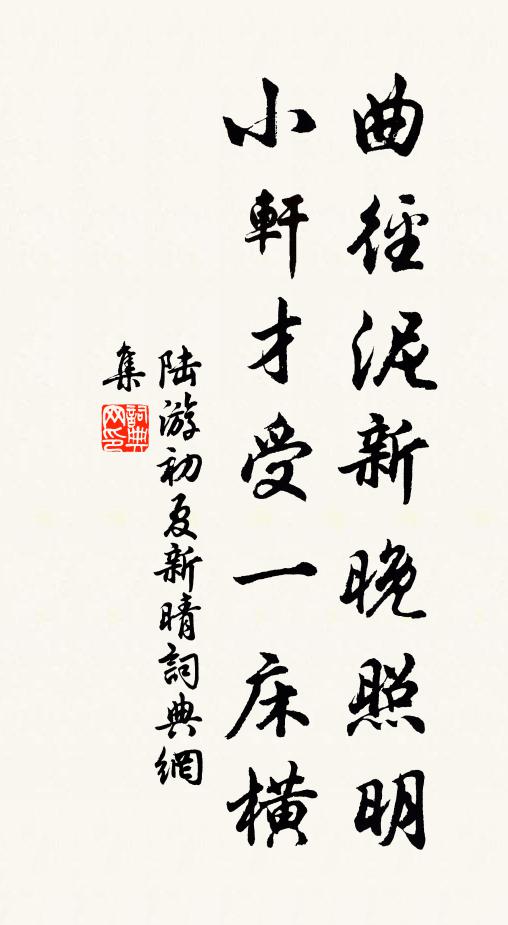 曲徑泥新晚照明
小軒才受一床橫
陆游初夏新晴詞典網
集
詞典网印